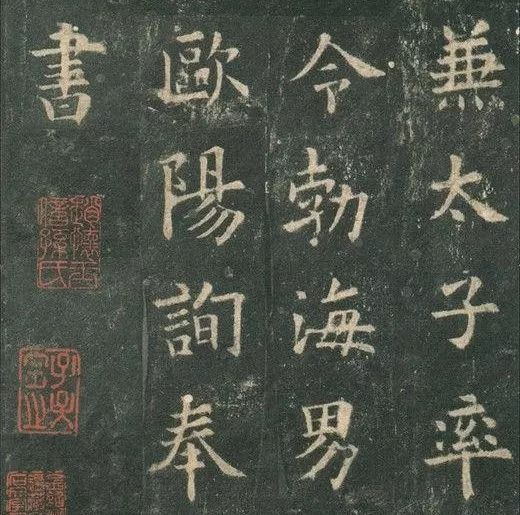 兼太子率
令勃海男
歐陽詢奉
書